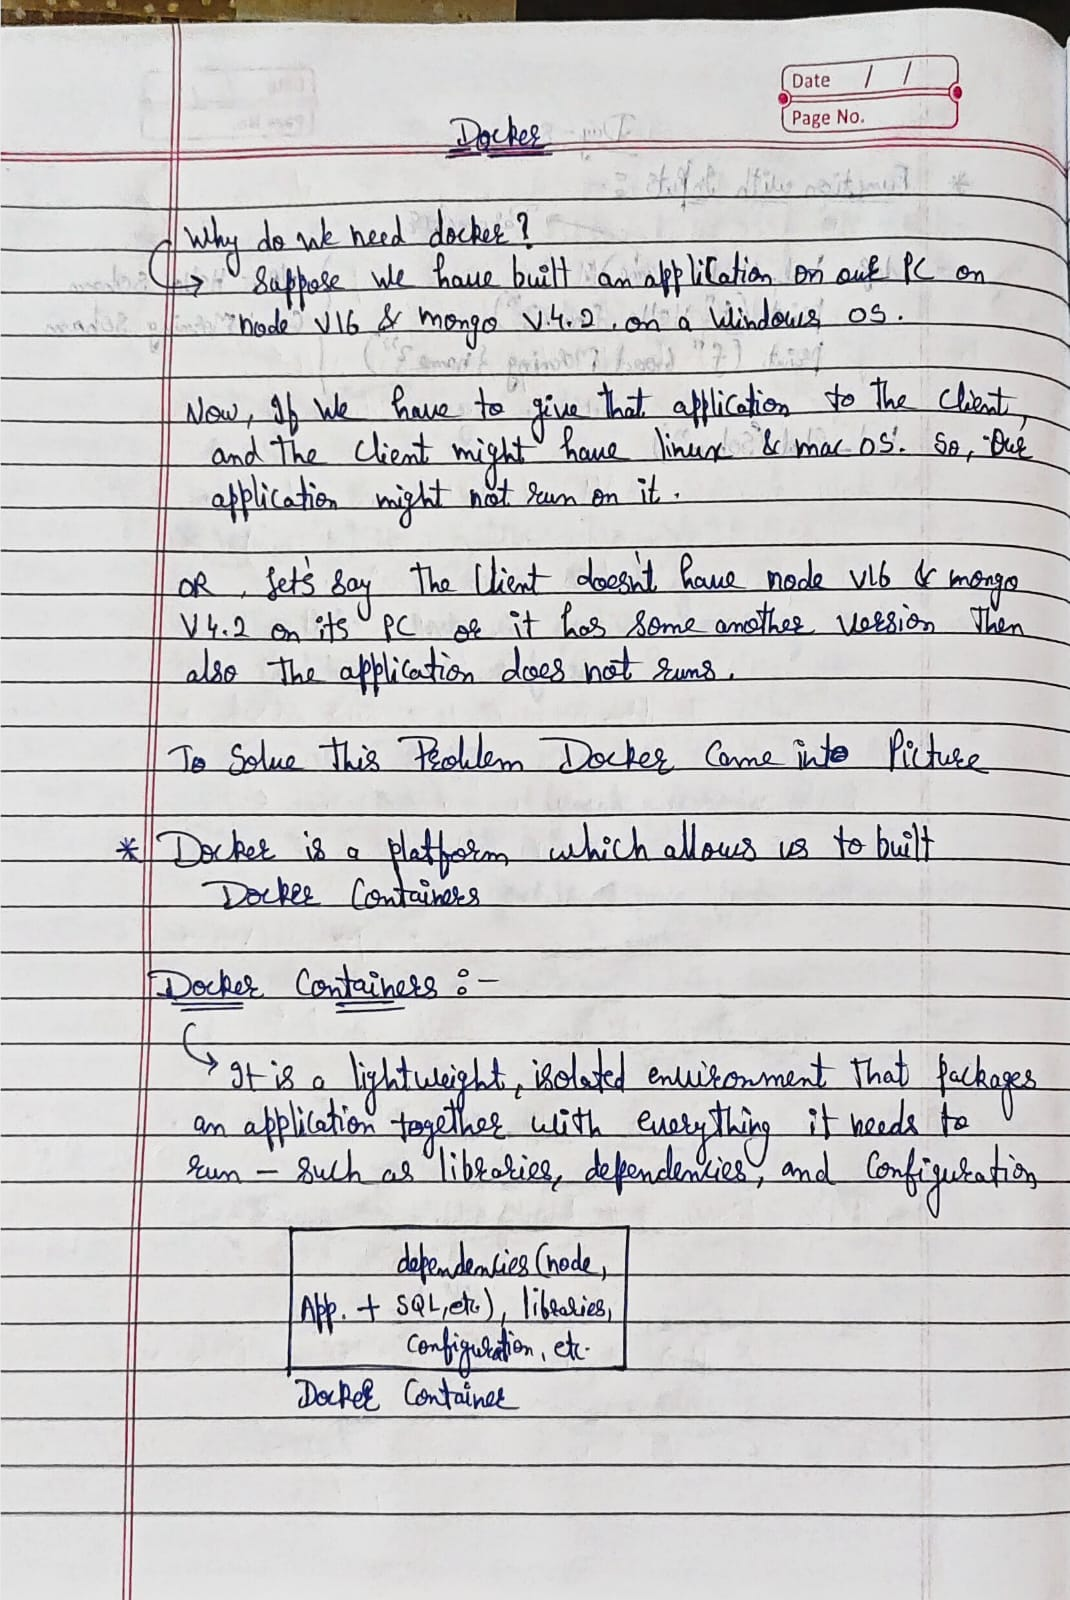 Date / /
Page No.
Docker
Why do we need docker?
→ Suppose we have built an application on our PC on
node V16 & mongo V.4.2. on a Windows OS.
Now, If we have to give that application to the Client,
and the Client might have linux & mac OS. So, Our
application might not run on it.
OR, let's say the Client doesn't have node V16 & mongo
V4.2 on its PC or it has some another version then
also the application does not runs.
To Solve this Problem Docker Came into Picture
* Docker is a platform which allows us to built
Docker Containers
Docker Containers :-
↳ It is a lightweight, isolated environment that packages
an application together with everything it needs to
run – such as libraries, dependencies, and Configuration
dependencies (node,
App. + SQL, etc.), libraries,
Configuration, etc.
Docker Container